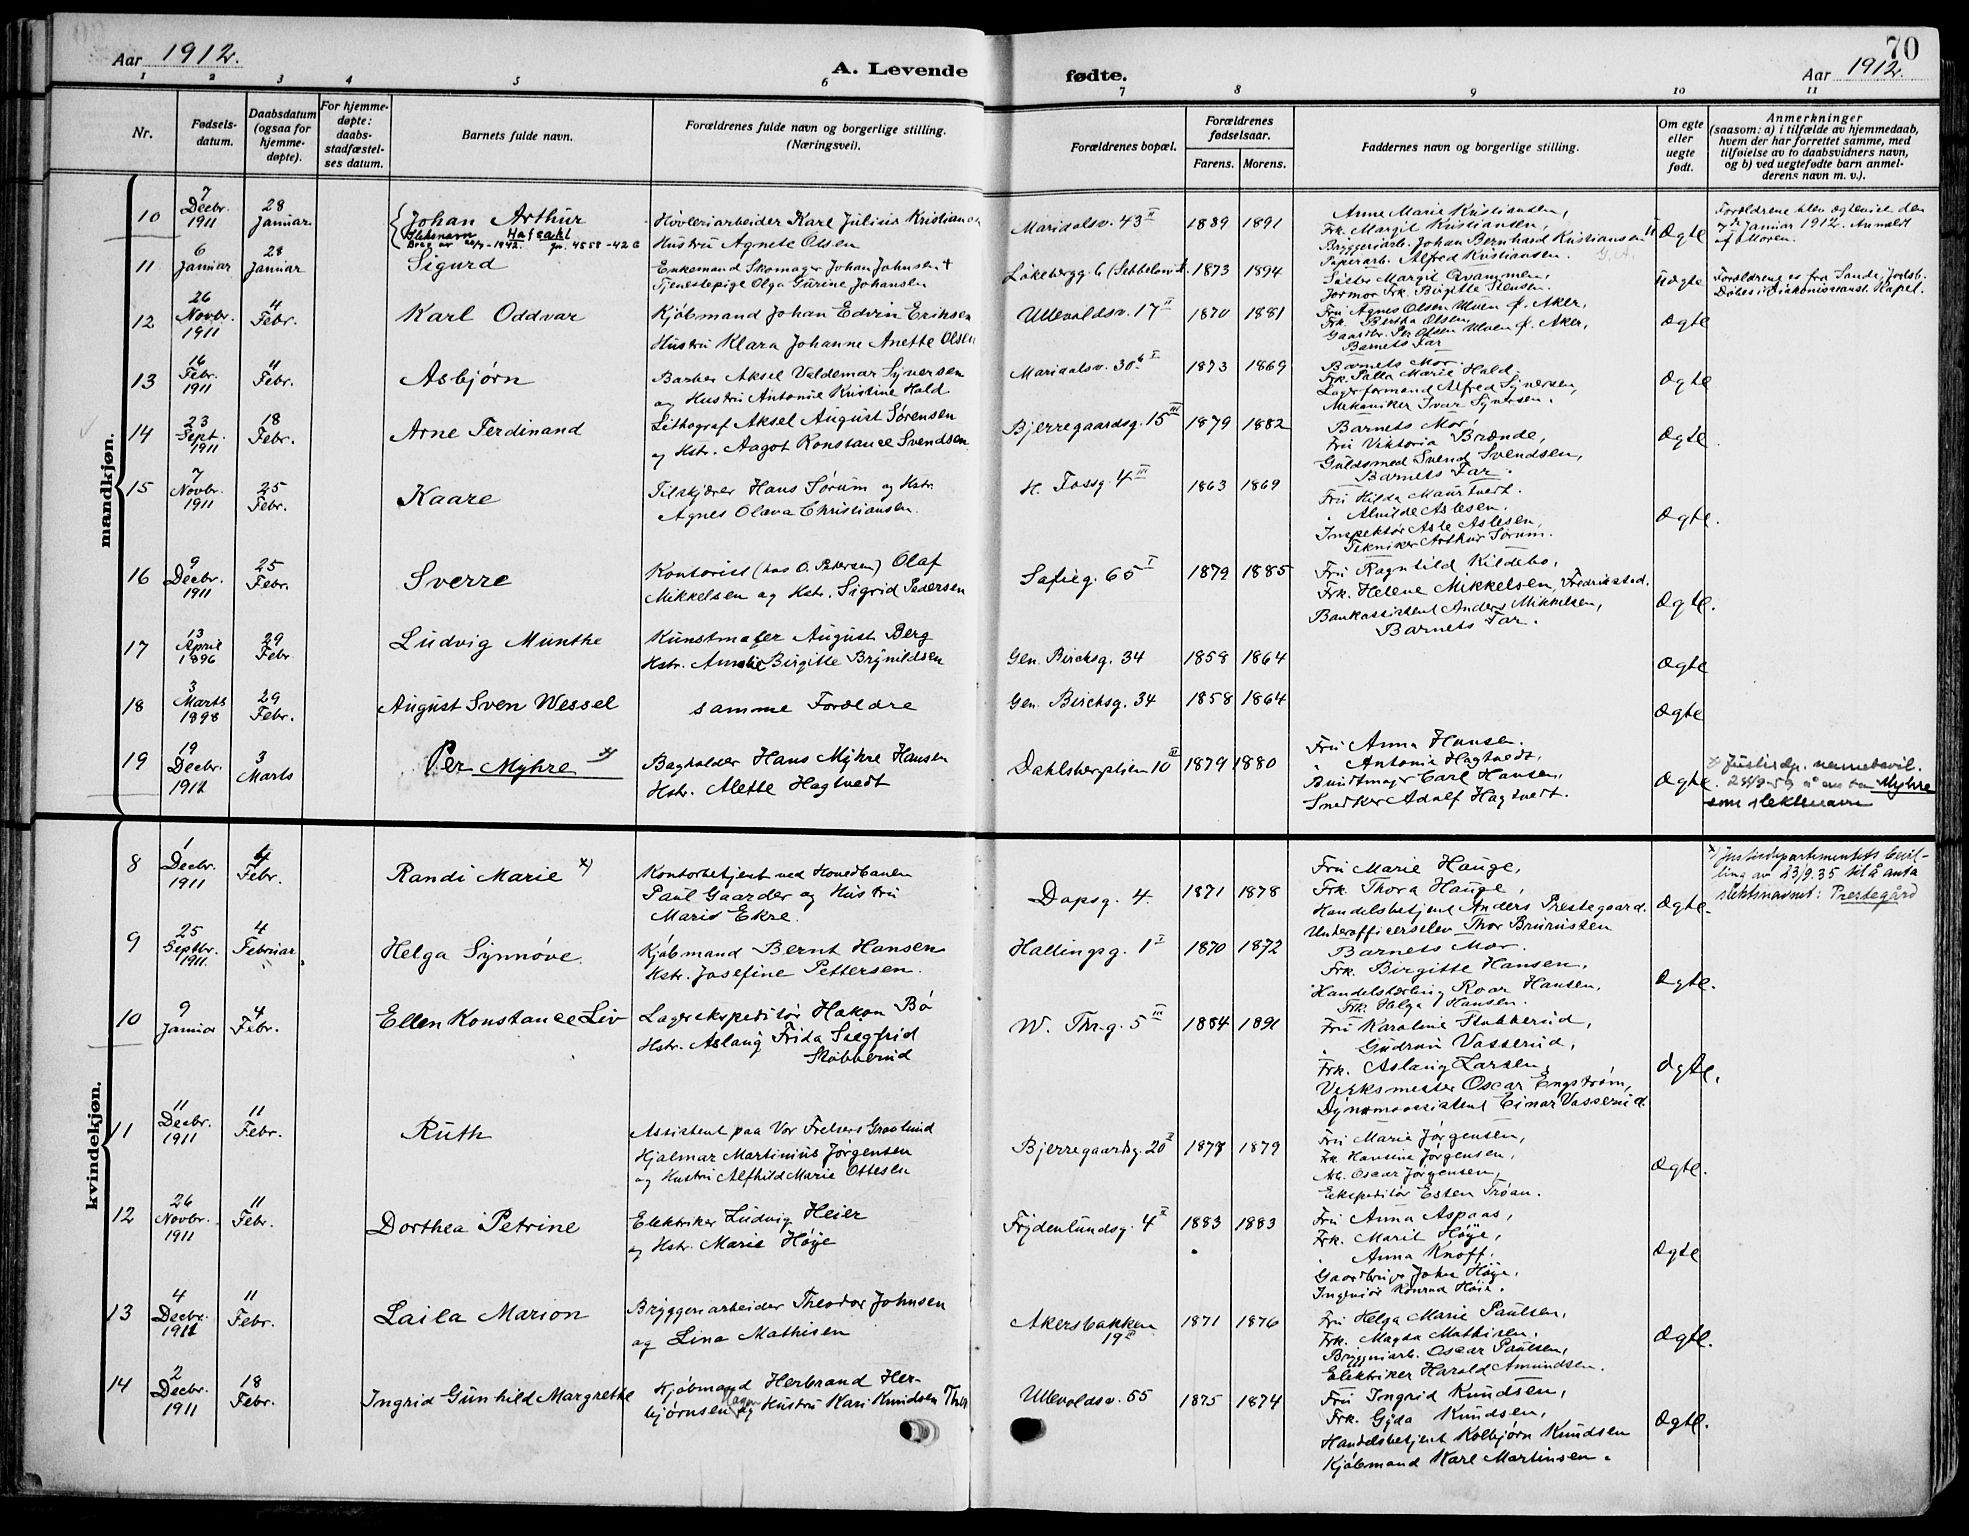 Aar 1912.
A. Levende fødte.
70
Aar 1912.
1 2 3 4 5 6 7 8 9 10 11
Nr.
Fødsels-
datum.
Daabsdatum
(ogsaa for
hjemme-
døpte).
For hjemme-
døpte:
daabs-
stadfæstel-
ses datum.
Barnets fulde navn.
Forældrenes fulde navn og borgerlige stilling.
(Næringsvei).
Forældrenes bopæl.
Forældrenes
fødselsaar.
Farens. Morens.
Faddernes navn og borgerlige stilling.
Om egte
eller
uegte
født.
Anmerkninger
(saasom: a) i tilfælde av hjemmedaab,
hvem der har forrettet samme, med
tilføielse av to daabsvidners navn,
og b) ved uegtefødte barn anmel-
derens navn m. v.).
mandkjøn.
10
7
Decbr.
1911
28
Januar
Johan Arthur
Slektsnavn Hafsahl
Høvleriarbeider Karl Julius Kristiansen
Hustru Agnete Olsen
Maridalsv. 43 II
1889 1891
Anne Marie Kristiansen,
Frk. Margit Kristiansen,
Bryggeriarb. Johan Bernhard Kristiansen
Papirarb. Alfred Kristiansen.
Ægte
Forældrene blev egteviet den
7de Januar 1912. Anmeldt
af Moren.
11
6
Januar
28
Januar
Sigurd
Enkemand Skomager Johan Johnsen +
Tjenestepige Olga Gurine Johansen
Løkebergg. 6
1873 1894
Jormor Frk. Birgitte Stensen.
Uægte
Forældrene er fra Sande, Jarlsb.
12
26
Novbr.
1911
4
Febr.
Karl Oddvar
Kjøbmand Johan Edvin Eriksen
Hustru Klara Johanne Anette Olsen
Ullevoldsv. 17 II
1870 1881
Fru Agnes Olsen Ulven Ø. Aker,
Frk. Bertha Olsen,
Gaardbr. Per Olsen Ulven Ø. Aker,
Barnets Far
Ægte
13
16
Febr.
1911
4
Febr.
Asbjørn
Barber Aksel Valdemar Syversen
og Hustru Antonie Kristine Hald
Maridalsv. 30 b I
1873 1869
Barnets Mor.
Frk. Palla Marie Hald,
Lagerformand Alfred Syversen,
Mekaniker Ivar Syversen.
Ægte
14
23
Sept.
1911
18
Febr.
Arne Ferdinand
Lithograf Aksel August Sørensen
og Hstr. Aagot Konstance Svendsen
Bjerregaardsg. 15 III
1879 1882
Barnets Mor,
Fru Viktoria Brænde,
Guldsmed Svend Svendsen,
Barnets Far.
Ægte.
15
7
Novbr.
1911
25
Febr.
Kaare
Tilskjærer Hans Sørum og Hstr.
Agnes Olava Christiansen.
H. Fossg. 4 III
1863 1869
Fru Hilda Maurtvedt.
" Alvilde Aslesen,
Inspektør Asle Aslesen,
Tekniker Arthur Sørum.
Ægte.
16
9
Decbr.
1911
25
Febr.
Sverre
Kontorist (hos O. Petersen) Olaf
Mikkelsen og Hstr. Sigrid Pedersen
Sofieg. 65 I
1879 1885
Fru Ragnhild Kildebo,
Frk. Helene Mikkelsen, Fredrikstad.
Bankassistent Anders Mikkelsen,
Barnets Far.
Ægte.
17
13
April
1896
29
Febr
Ludvig Munthe
Kunstmaler August Berg
Hstr. Amalie Birgitte Brynildsen
Gen. Birchsg. 34
1858 1864
Ægte
18
3
Marts
1898
29
Febr.
August Sven Wessel
samme Forældre
Gen. Birchsg. 34
1858 1864
Ægte
19
19
Decbr.
1911
3
Marts
Per Myhre x)
Bogholder Hans Myhre Hansen
Hstr. Alette Hagtvedt
Dahlsbergstien 10 II
1879 1880
Fru Anna Hansen.
" Antonie Hagtvedt,
Buntmager Carl Hansen,
Snedker Adolf Hagtvedt.
Ægte.
x) Justisdp. navnebevil.
Myhre
som slektsnavn
kvindekjøn.
8
1
Decbr.
1911
4
Febr.
Randi Marie x)
Kontorbetjent ved Hovedbanen
Paul Gaarder og Hustru
Maris Ekre.
Dopsg. 4.
1871 1878
Fru Marie Hauge,
Frk. Thora Hauge,
Handelsbetjent Anders Prestegaard.
Underofficerselev Thor Brurusten
Ægte.
x) Justisdepartementets bevil-
ling av 23/9.35 til å anta
slektsnavnet: Prestegård
9
25
Septbr.
1911.
4
Februar
Helga Synnøve
Kjøbmand Bernt Hansen
Hstr. Josefine Pettersen.
Hallingsg. 1 I
1870 1872
Barnets Mor.
Frk. Birgitte Hansen,
Handelslærling Roar Hansen,
Frk. Helga Hansen.
Ægte.
10
9
Januar
4
Febr.
Ellen Konstance Liv
Lagerekspeditør Hakon Bø
Hstr. Aslaug Frida Siegfrid
Stubberud
W. Thr.g. 5 III
1884 1891
Fru Karoline Stubberud,
" Gudrun Vasserud,
Frk. Aslaug Larsen,
Verksmester Oscar Engstrøm,
Dynamoassistent Einar Vasserud.
Ægte.
11
11
Decbr.
1911
11
Febr.
Ruth
Assistent paa Vor Frelsers Gravlund
Hjalmar Martinius Jørgensen
og Hustru Alfhild Marie Ottesen
Bjerregaardsg. 20 II
1878 1879
Fru Marie Jørgensen,
Frk. Hansine Jørgensen,
Arb. Oscar Jørgensen,
Ekspeditør Esten Trøan.
Ægte.
12
26
Novbr.
1911
11
Febr.
Dorthea Petrine
Elektriker Ludvig Heier
og Hstr. Marie Høye
Frydenlundsg. 4 II
1883 1883
Fru Anna Aspaas,
Frk. Marit Høye,
" Anna Knoff.
Gaardbruger John Høye,
Ingeniør Konrad Høie.
Ægte
13
4
Decbr.
1911
11
Febr.
Laila Marion
Bryggeriarbeider Theodor Johnsen
og Lina Mathisen
Akersbakken
19 II
1871 1876
Fru Helga Marie Paulsen,
Frk. Magda Mathisen,
Bryggeriarb. Oscar Paulsen,
Elektriker Harald Amundsen.
Ægte.
14
2
Decbr.
1911
18
Febr.
Ingrid Gunhild Margrethe
Kjøbmand Herbrand Her-
bjørnsen og Hustru Kari Knudsen
Ullevoldsv. 55
1875 1874
Fru Ingrid Knudsen,
Frk. Gyda Knudsen,
Handelsbetjent Kolbjørn Knudsen
Kjøbmand Karl Martinsen.
Ægte.